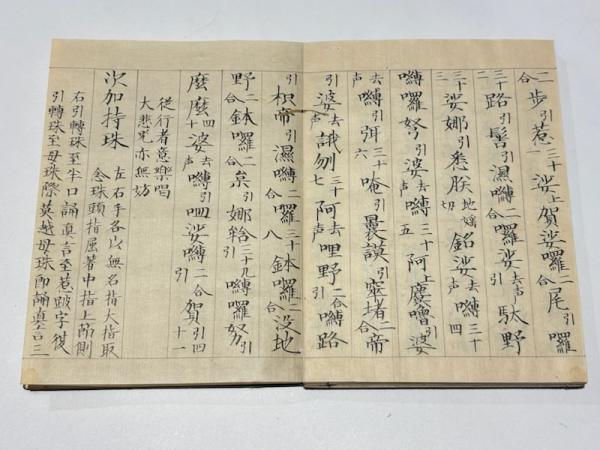 二合步引惹一三十娑上賀娑囉二合尾引囉
三十二路引髻引濕嚩二合囉娑去声引馱野
三十三娑娜引悉朕地嬌切銘娑去嚩三十四
嚩囉努引婆去声嚩三十五阿上慶嚕婆
去声嚩引弭三十六唵引曩謨引窣堵二合帝
引婆去声誐刎三十七阿去声哩野二合嚩路
引枳帝引濕嚩二合囉三十八鉢囉二合没地
野二合鉢囉二合枲娜引三十九嚩囉努引
麼麼四十婆去嚩呬娑嚩二合引賀引四十一
従行者意樂唱
大悲咒亦無妨
次加持珠
左右手各以無名指大指取
念珠頭指屈著中指上節側
右引轉珠至半口誦真言至惹跛字従
引轉珠至母珠際莫越母珠即誦真言三